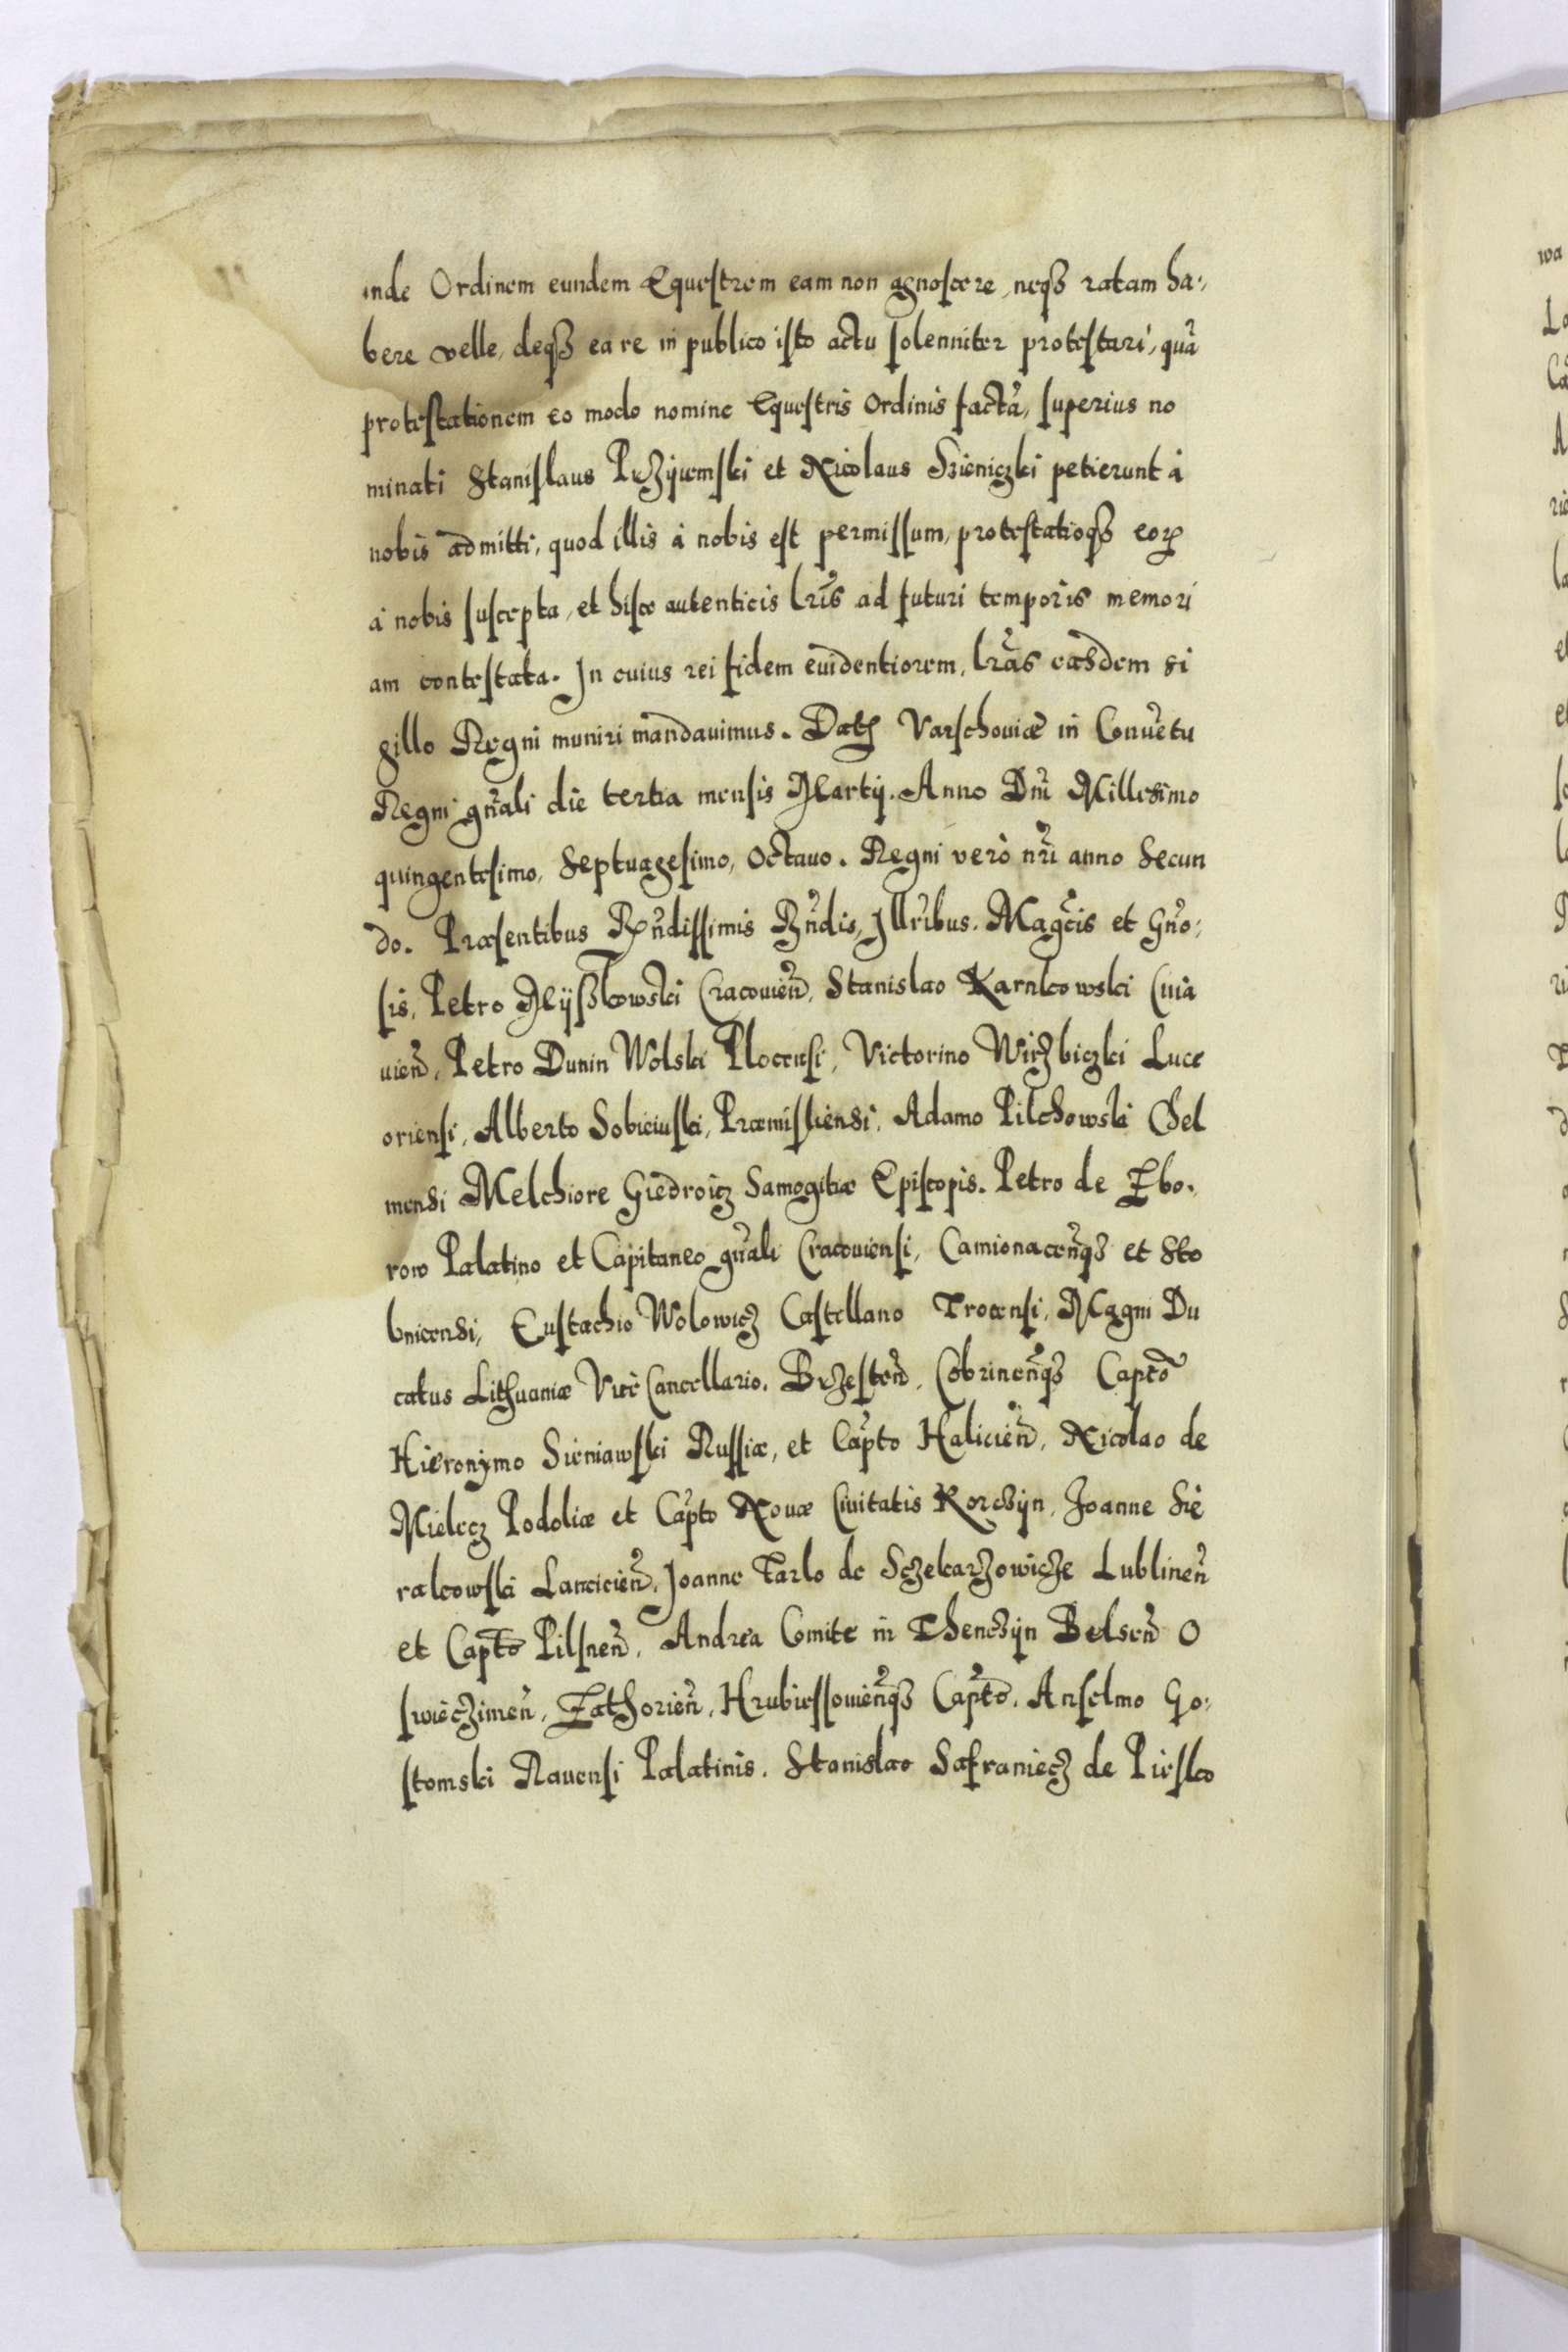 inde Ordinem eundem Equestrem eam non agnoscere, neqȝ ratam ha-
bere velle, deqȝ ea re in publico isto actu solenniter protestari, quã
protestationem eo modo nomine Equestris Ordinis factã, superius no
minati Stanislaus Przÿiemski et Nicolaus Sieniczki petierunt à
nobis admitti, quod illis à nobis est permissum, protestatioqȝ eoꝝ
à nobis suscepta, et hisce autenticis lr̃is ad futuri temporis memori
am contestata. In cuius rei fidem euidentiorem, lr̃as easdem si
gillo Regni muniri mandauimus. Datꝫ Varschouiæ in Conuẽtu
Regni gñali die tertia mensis Martij. Anno Dñi Millesimo
quingentesimo, Septuagesimo, Octauo. Regni verò nr̃i anno Secun
do. Præsentibus Rñdissimis Rñdis, Illr̃ibus. Magc̃is et Gño-
sis, Petro Mÿsskowski Cracouieñ, Stanislao Karnkowski Cuia
uieñ, Petro Dunin Wolski Plocensi, Victorino Wirzbiczki Luce
oriensi, Alberto Sobieiuski, Præmisliensi, Adamo Pilchowski Chel
mensi Melchiore Giedroicz Samogitiæ Episcopis. Petro de Zbo-
row Palatino et Capitaneo gñali Cracouiensi, Camionaceñqȝ et Sto
bnicensi, Eustachio Wolowicz Castellano Trocensi, Magni Du
catus Lithuaniæ Vice Cancellario, Brzesteñ, Cobrineñqȝ Capt̃o
Hieronÿmo Sieniawski Russiæ, et Cap̃to Halicieñ, Nicolao de
Mielecz Podoliæ et Cap̃to Nouæ Ciuitatis Korczÿn, Joanne Sie
rakowski Lancicieñ, Joanne Tarlo de Sczekarzowicze Lublineñ
et Capt̃o Pilsneñ, Andrea Comite in Thenczÿn Belseñ O
swieczimeñ, Zathorieñ, Hrubiessouieñqȝ Cap̃to, Anselmo Go-
stomski Rauensi Palatinis. Stanislao Safraniecz de Piesko